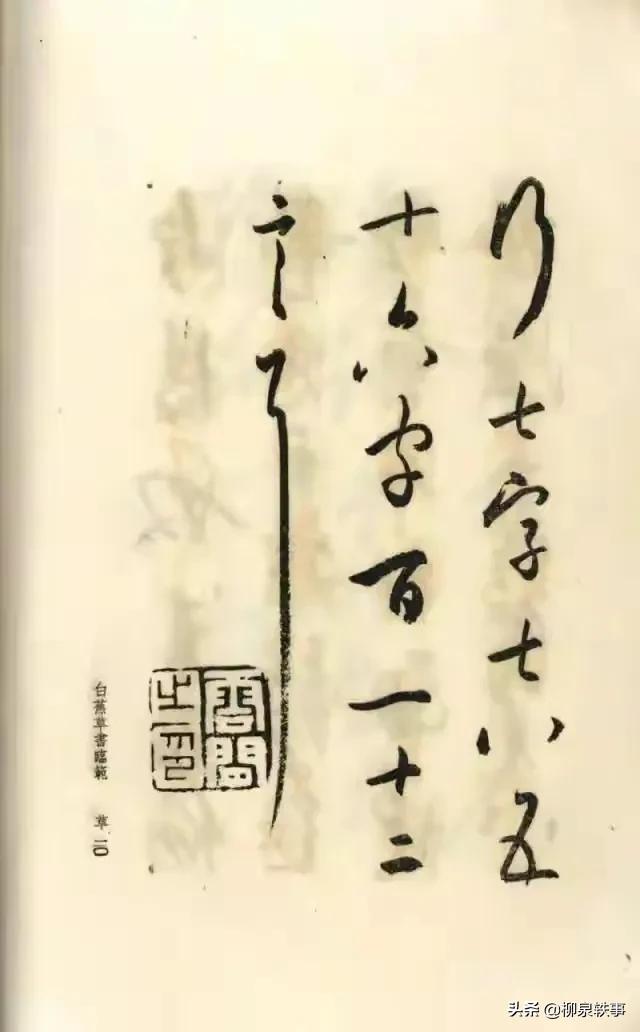 行七字七八五
十六字百一十二
言耳
白蕉草書臨範 草二〇
头条 @柳泉轶事